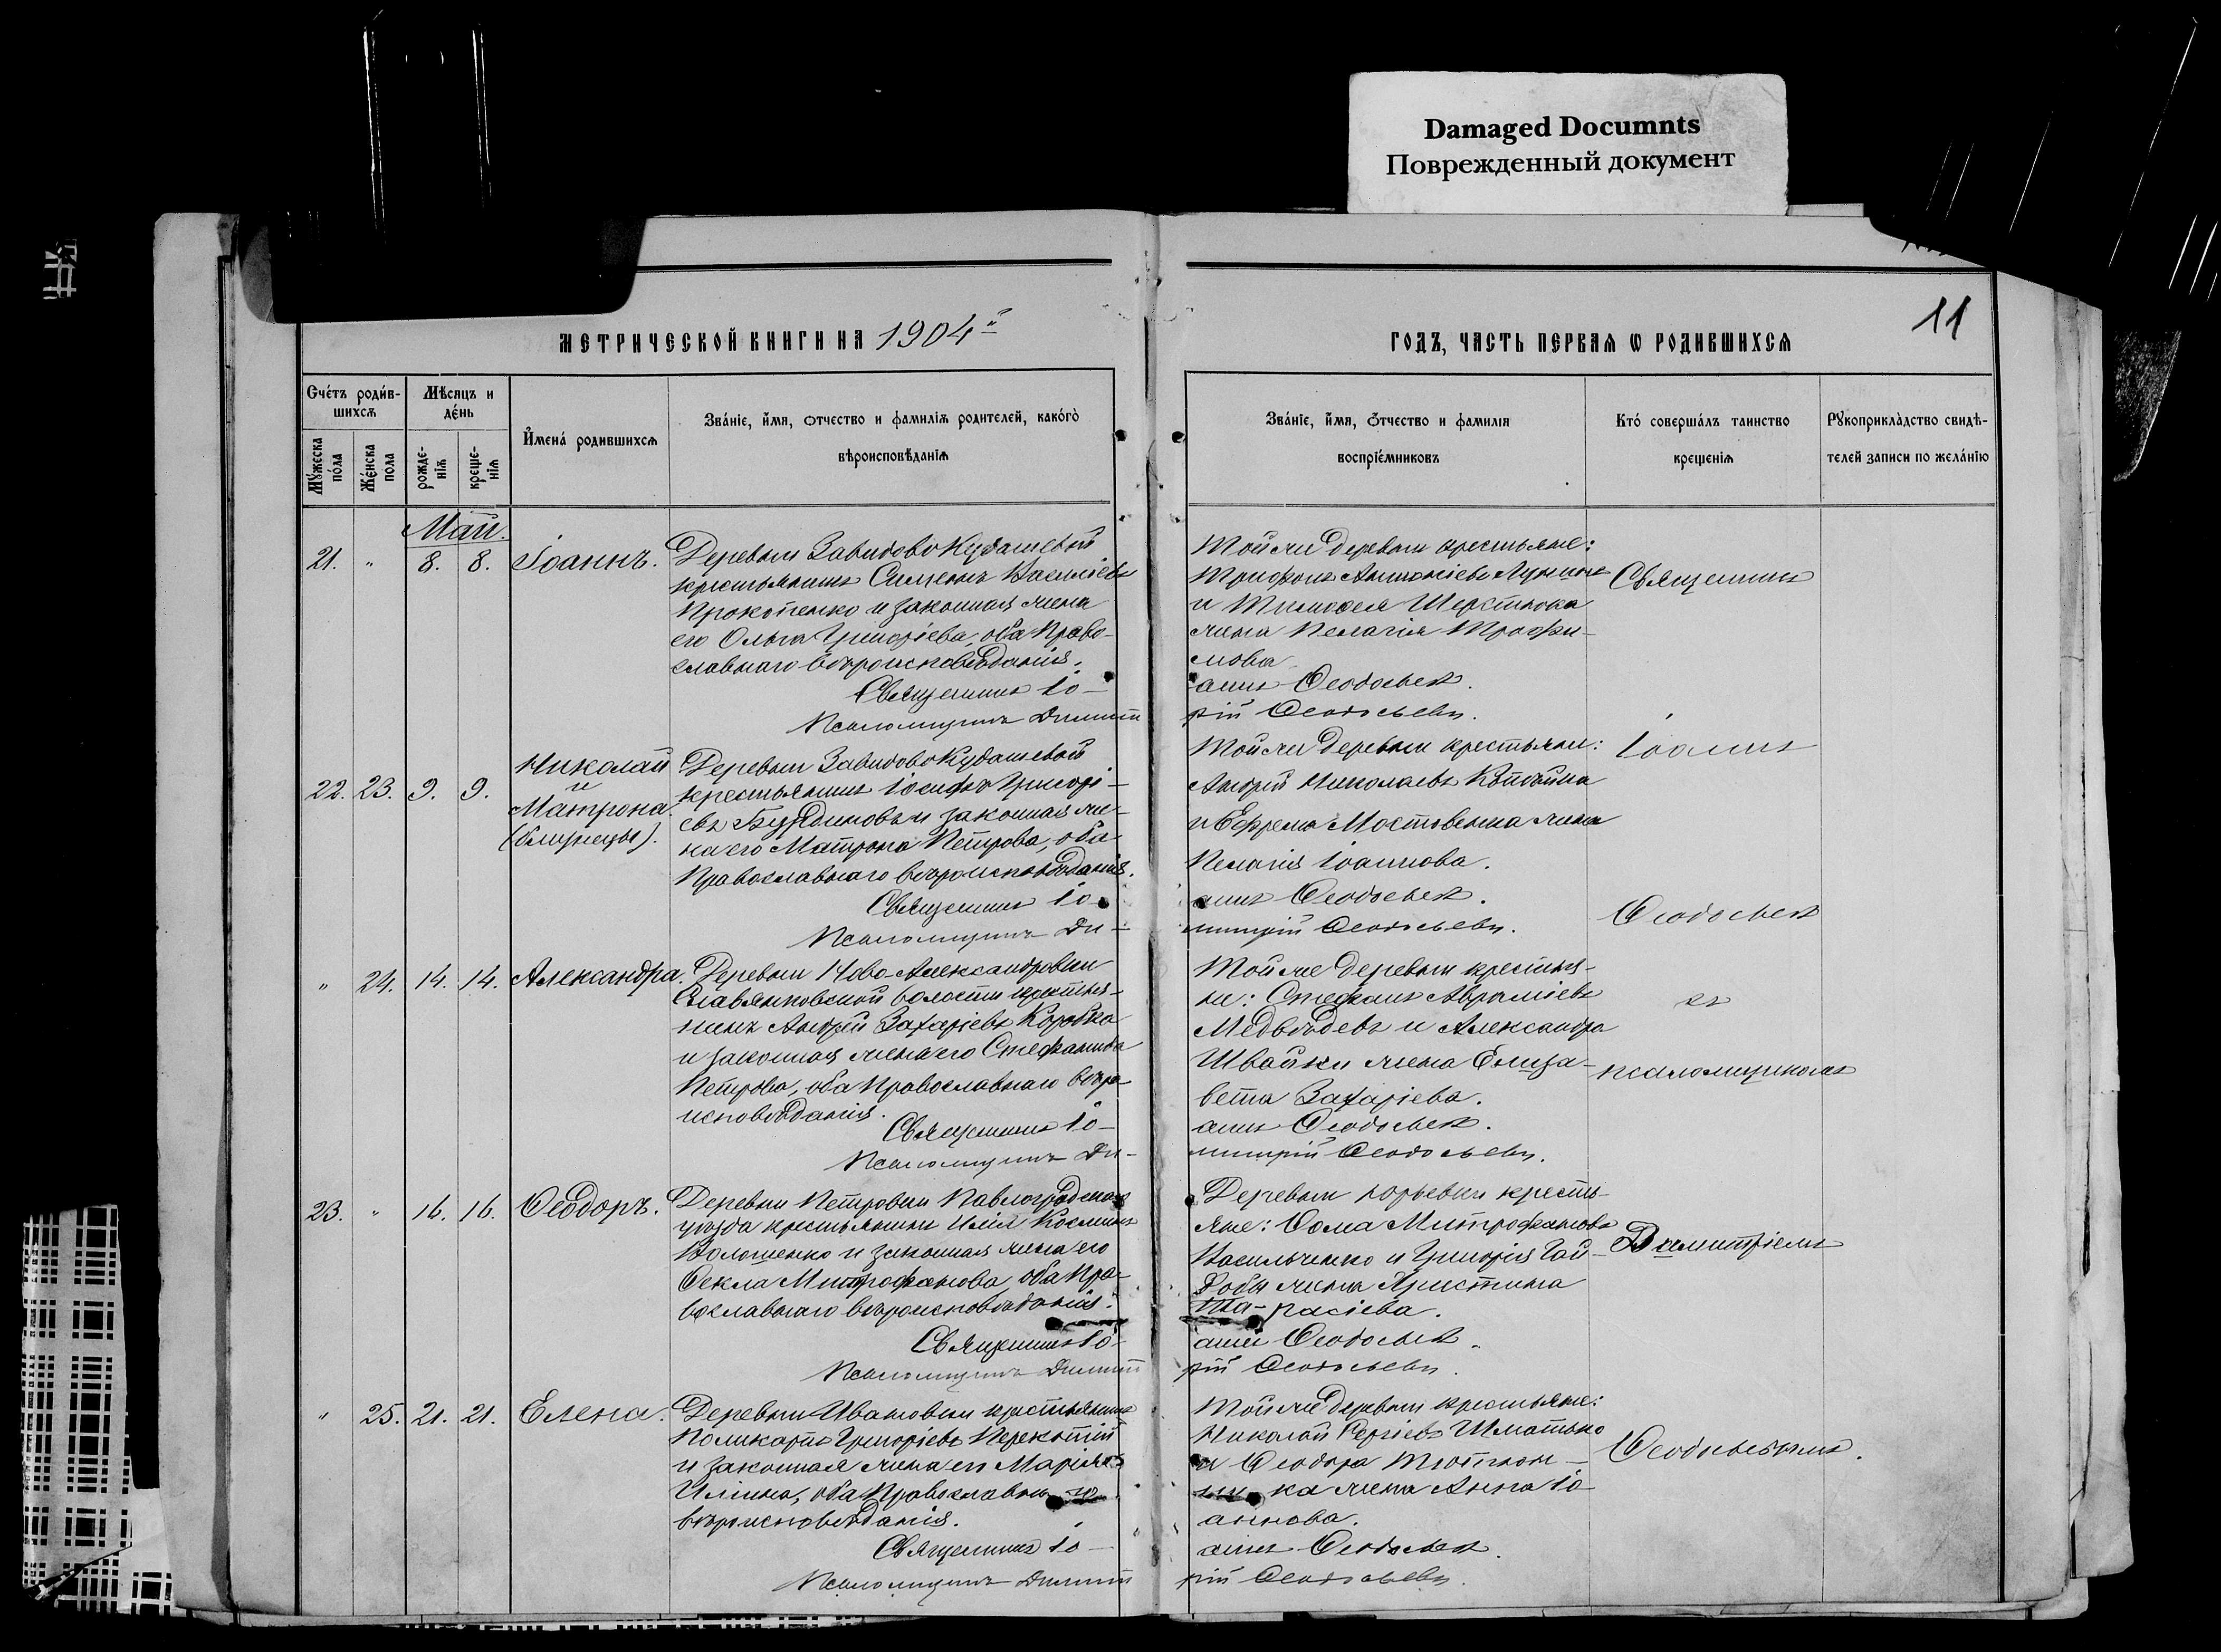 Damaged Documnts
Поврежденный документ
11
МЕТРИЧЕСКОЙ КНИГИ НА 1904й
ГОДЪ, ЧАСТЬ ПЕРВАЯ Ѡ РОДИВШИХСЯ
Счéтъ роди́в-
шихсѧ
Мѣсяцъ и
дéнь
Мꙋ́жеска
по́ла
Же́нска
пола
рожде-
нїѧ
креще-
нїѧ
И҆́мена́ родившихсѧ
Зва́нїе, и҆́мя, ѻтчество и фамилїѧ родителей, како́гѡ
вѣроисповѣданїѧ
Зва́нїе, и҆́мя, ѻтчество и фамилія
воспрїе́мниковъ
Кто́ совершáлъ таинство
крещенїѧ
Рꙋкоприклáдство свидѣ-
телей записи по желáнїю
Май.
21. " 8. 8. Іоаннъ.
Деревни Завидово Кудашевой
крестьянинъ Симеонъ Васильевъ
Прокопенко и законная жена
его Ольга Григоріева, оба Право-
славнаго вѣроисповѣданія.
Священникъ Іо-
Псаломщикъ Димит
Той же деревни крестьяне:
Трифонъ Антоніевъ
и Тимофея
жена Пелагія Трофи-
мова
аннъ Ѳеодосьевъ.
рій Ѳеодосьевъ.
22. 23. 9. 9. Николай
и
Матрона
(близнецы).
Деревни Завидово Кудашевой
крестьянинъ Іосифъ Григорі-
евъ и законная же-
на его Матрона Петрова, оба
Православнаго вѣроисповѣданія.
Священникъ Іо-
Псаломщикъ Ди-
Той же деревни крестьяне:
Андрей Николаевъ
и Ефрема Мостовенка жена
Пелагія Іоаннова.
аннъ Ѳеодосьевъ.
митрій Ѳеодосьевъ.
" 24. 14. 14. Александра.
Деревни Ново-Александровки
Славянковской волости крестья-
нинъ Андрей Захаріевъ Коробка
и законная жена его Стефанида
Петрова, оба Православнаго вѣро-
исповѣданія.
Священникъ Іо-
Псаломщикъ Ди-
Той же деревни крестья-
не: Стефанъ Авраміевъ
Медвѣдевъ и Александра
Швайки жена Елиза-
вета Захаріева.
аннъ Ѳеодосьевъ.
митрій Ѳеодосьевъ.
23. " 16. 16. Ѳеодоръ.
Деревни Петровки Павлоградскаго
уѣзда крестьянинъ Илія Косминъ
Волошенко и законная жена его
Ѳекла Митрофанова, оба Пра-
вославнаго вѣроисповѣданія.
Священникъ Іо-
Псаломщикъ Димит
Деревни Юрьевки кресть-
яне: Ѳома Митрофановъ
Васильченко и Григорія Гай-
добы жена Христина
Та-расіева.
аннъ Ѳеодосьевъ.
рій Ѳеодосьевъ.
" 25. 21. 21. Елена.
Деревни Ивановки крестьянинъ
Поликарпъ Григоріевъ
и законная жена его Марія
Ильина, оба Православнаго
вѣроисповѣданія.
Священникъ Іо-
Псаломщикъ Димит
Той же деревни крестьяне:
Николай Сергіевъ Шматько
и Ѳеодора
ка жена Анна Іо-
аннова.
аннъ Ѳеодосьевъ.
рій Ѳеодосьевъ.
Священникъ
Іоаннъ
Ѳеодосьевъ
съ
псаломщикомъ
Димитріемъ
Ѳеодосьевымъ.